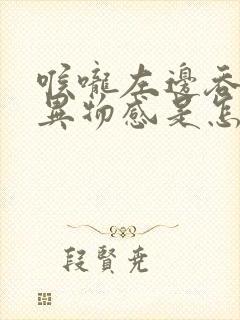 喉嚨左邊吞
異物感是怎
段賢堯